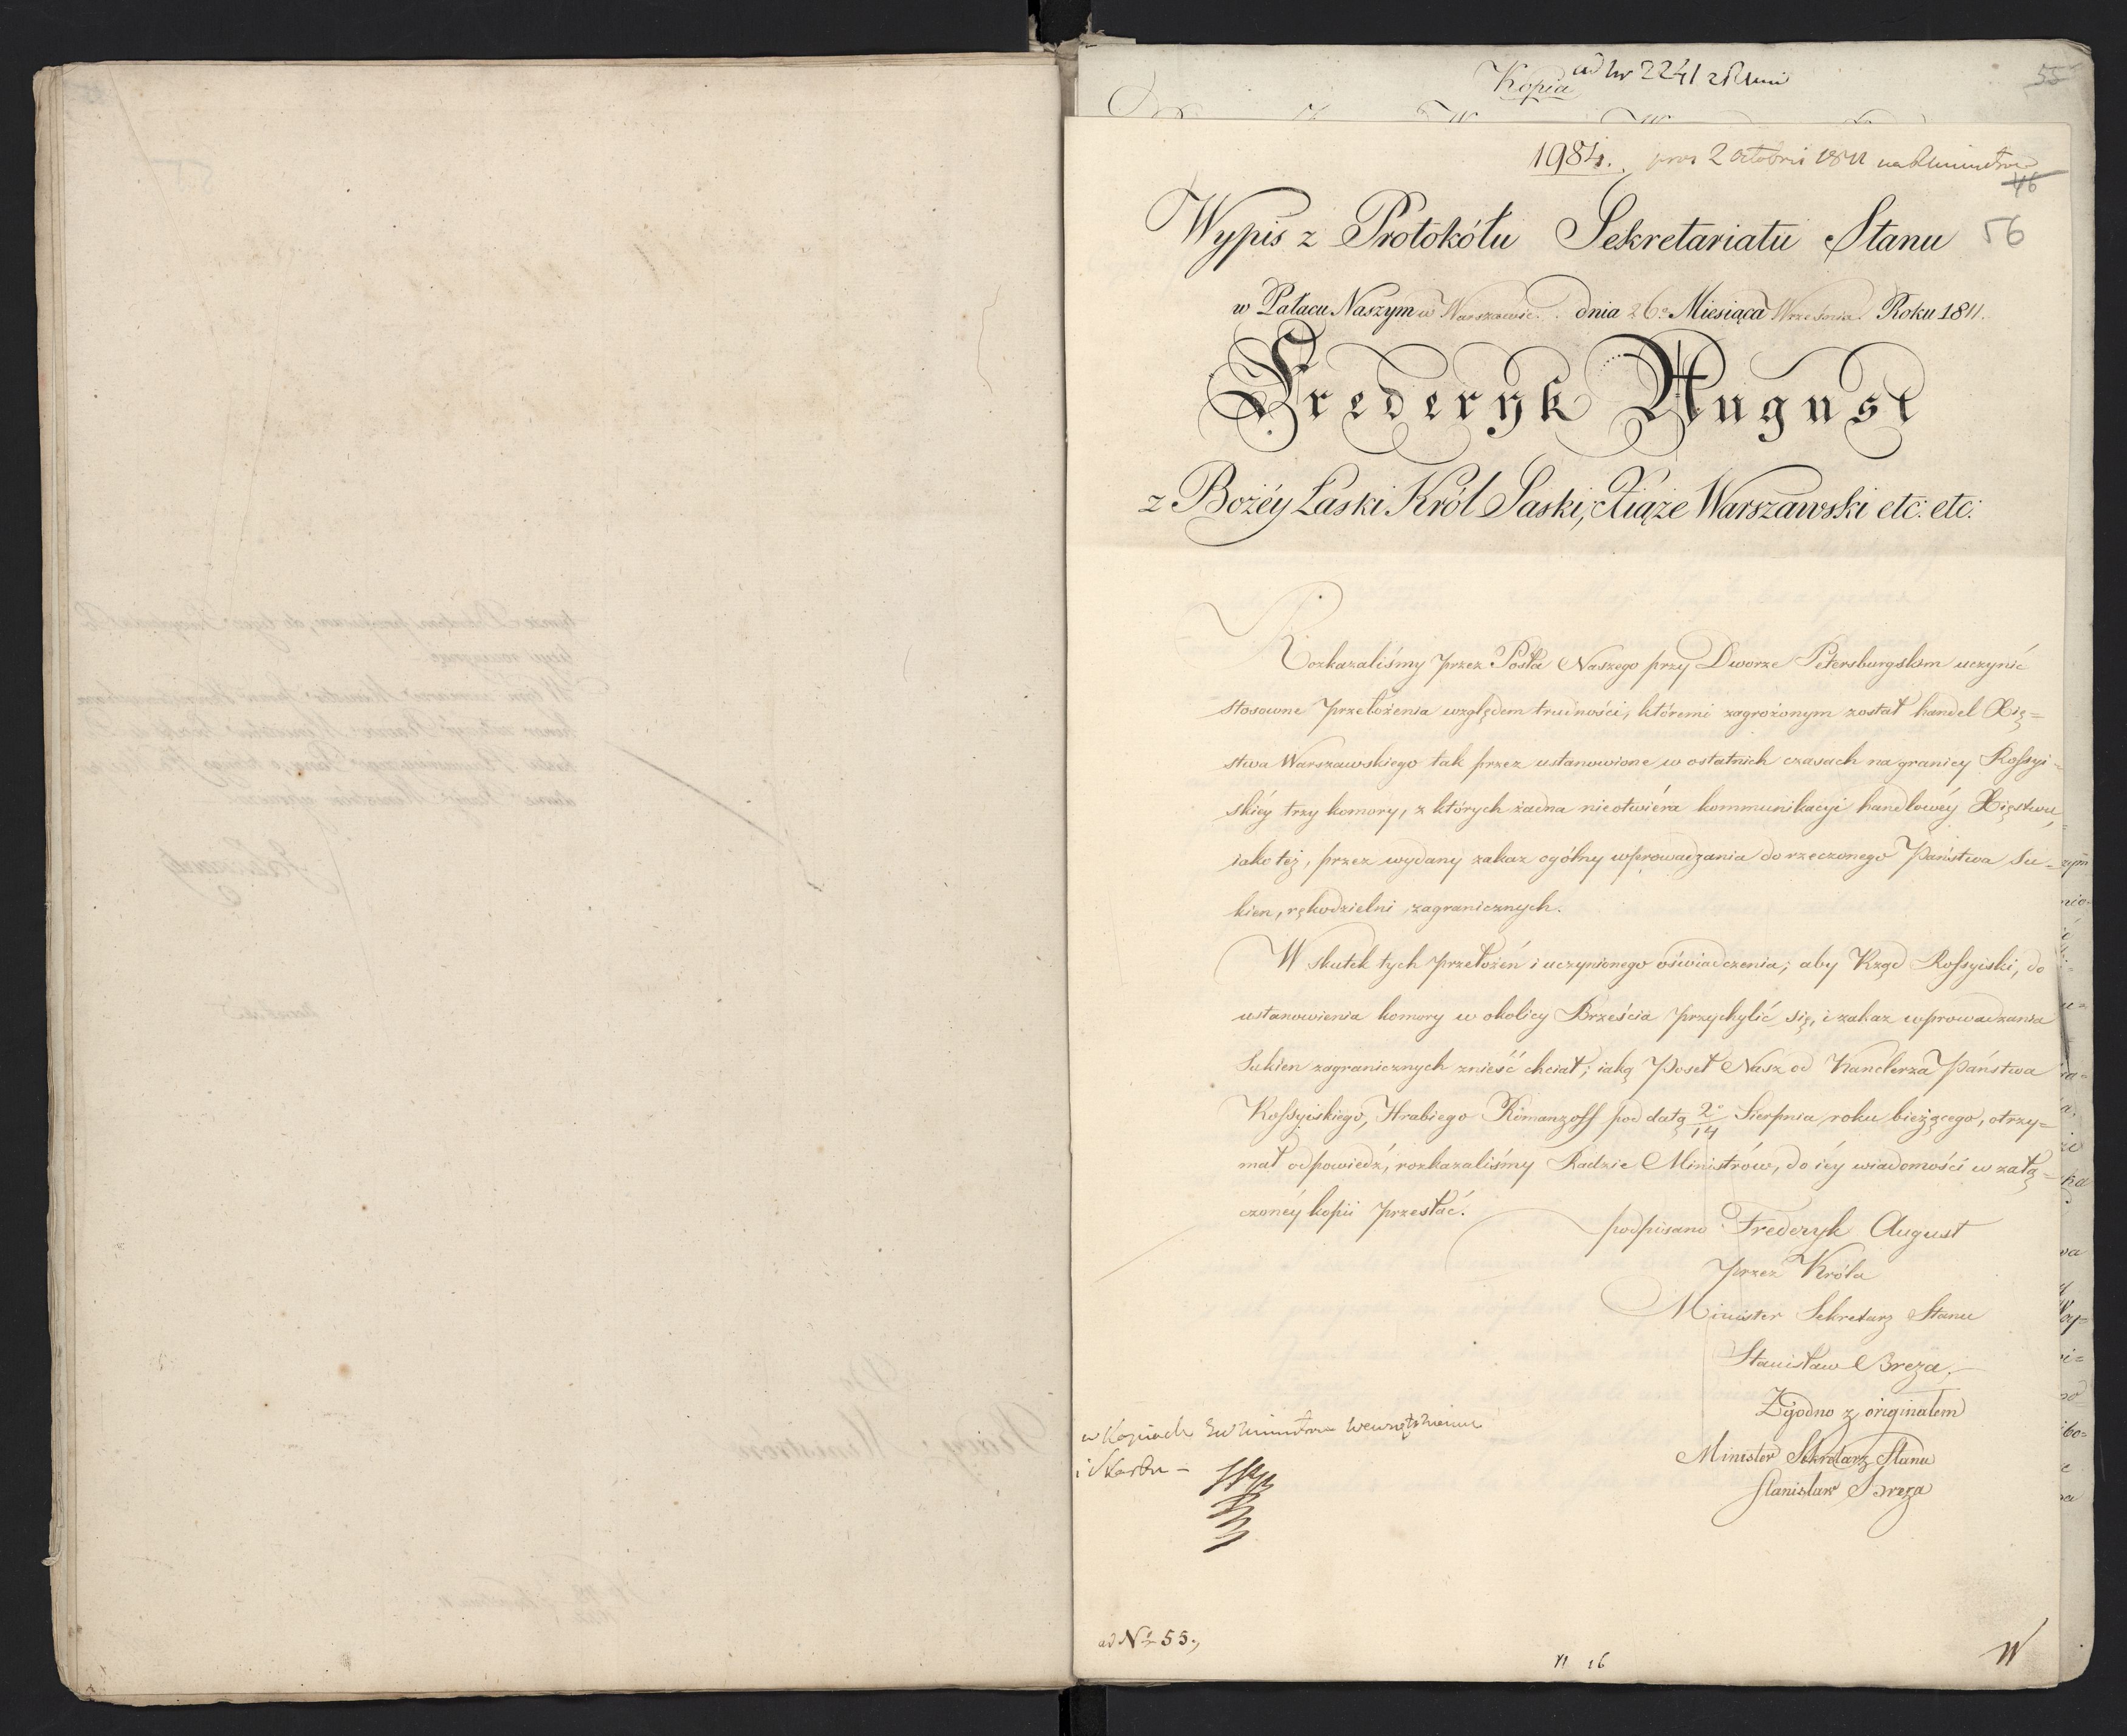 Kopia ad Nr 2241
55
1984. 2 Octobris 1811
46
Wypis z Protokółu Sekretariatu Stanu 56
w Pałacu Naszym w Warszawie dnia 26º Miesiąca Września Roku 1811.
Frederyk August
z Bożéy Łaski Król Saski, Xiąże Warszawski etc: etc:
Rozkazaliśmy przez Posła Naszego przy Dworze Petersburgskim uczynić
stosowne przełożenia względem trudności, któremi zagrożonym został handel Xię=
stwa Warszawskiego tak przez ustanowione w ostatnich czasach na granicy Rossyi=
skiéy trzy komory, z których żadna nieotwiéra kommunikacyi handlowéy Xięstwu,
iako też, przez wydany zakaz ogólny wprowadzania do rzeczonego Państwa Su=
kien, rękodzielni zagranicznych.
W skutek tych przełożeń i uczynionego oświadczenia; aby Rząd Rossyiski, do
ustanowienia komory w okolicy Brześcia przychylić się, i zakaz wprowadzania
Sukien zagranicznych znieść chciał; iaką Poseł Nasz od Kanclerza Państwa
Rossyiskiego, Hrabiego Romanzoff pod datą 2º/14 Sierpnia roku bieżącego, otrzy=
mał odpowiedź, rozkazaliśmy Radzie Ministrów, do iéy wiadomości w załą=
czonéy kopii przesłać.
podpisano Frederyk August
przez Króla
Minister Sekretarz Stanu
Stanisław Breza.
Zgodno z originałem
Minister Sekretarz Stanu
Stanisław Breza
w Kopiach
i Skarbu –
ad Nº 55.,